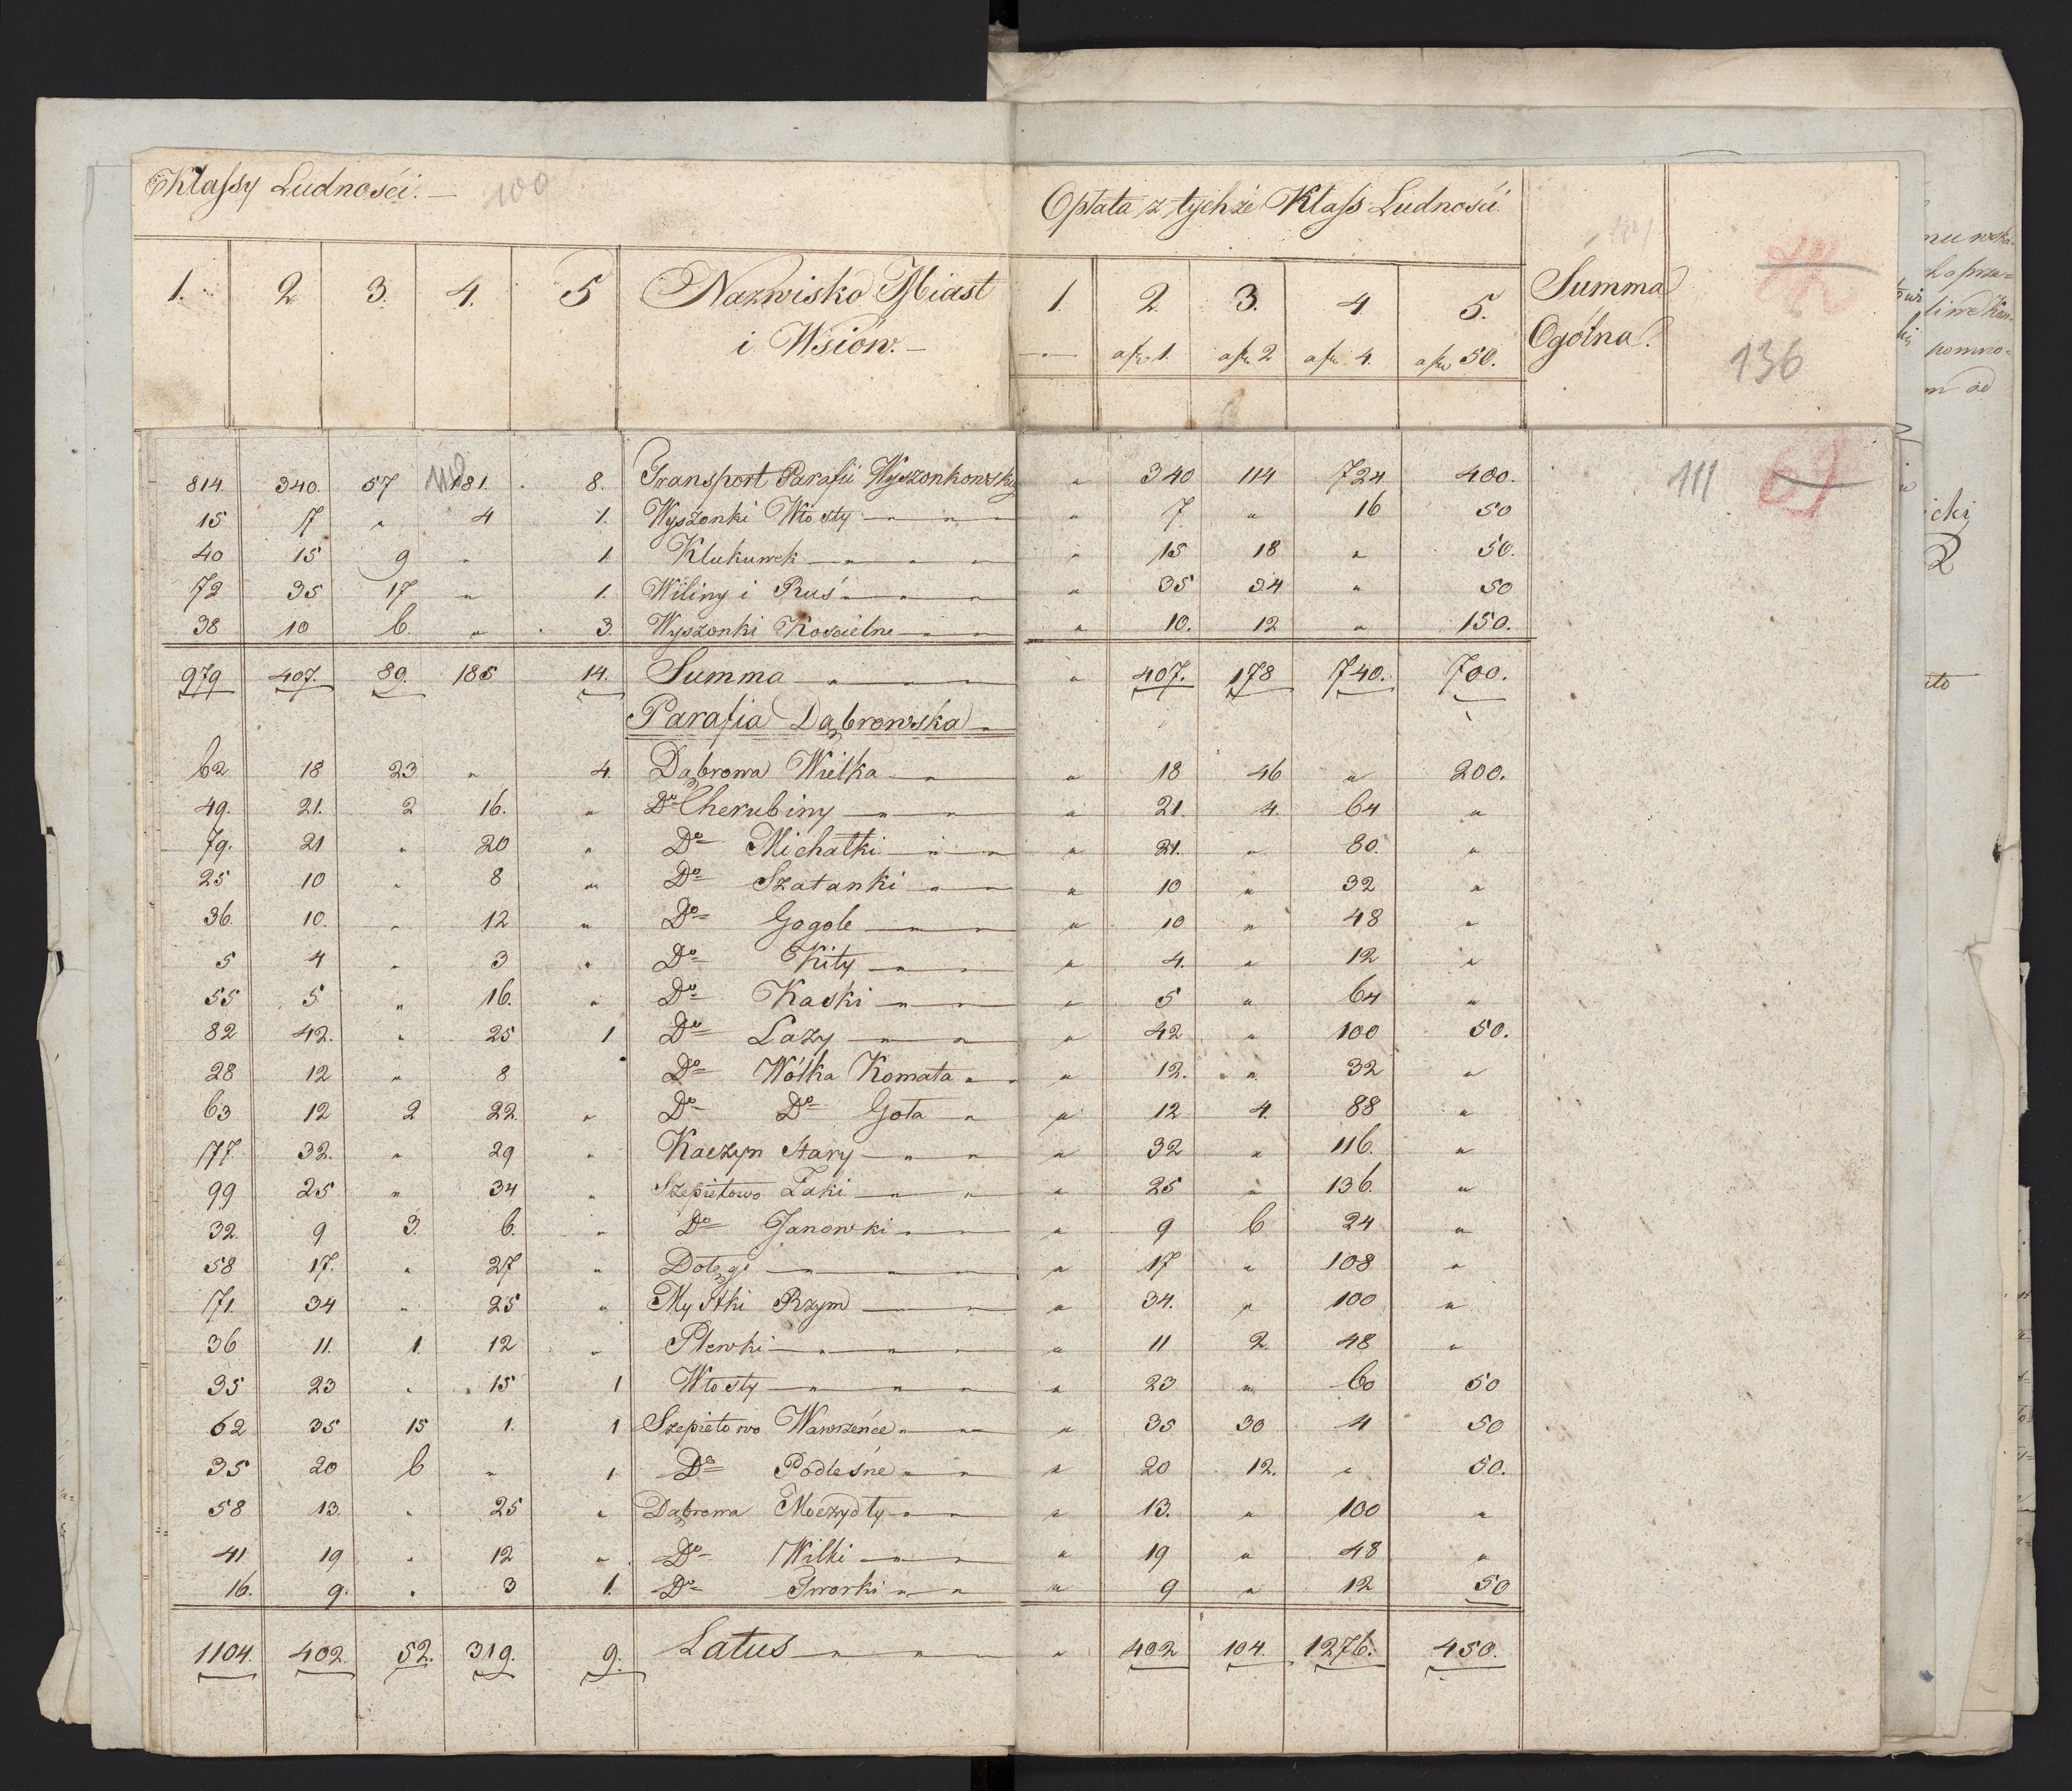 Klassy Ludności. — 100
Opłata z tychże Klass Ludności.
1. 2. 3. 4. 5 Nazwisko Miast 1. 2. 3. 4 5. Summa
i Wsiów. — Ogólna.
a fl. 1. a fl. 2 a fl. 4. a fl. 50.
136
814. 340. 57 181. 8. Transport Parafii Wyszonkowsky " 340 114 724 400. 111 69
15 7 " 4 1. Wyszonki Włosty " 7. " 16 50
40 15 9 " 1 Klukuwek " 15 18 " 50.
72 35 17 " 1. Wiliny i Ruś " 35 34 " 50
38 10 6. " 3. Wyszonki Kościelne " 10. 12 " 150.
979 407. 89. 185 14. Summa " 407. 178 740. 700.
Parafia Dąbrowska
62 18 23 " 4. Dąbrowa Wielka " 18 46 " 200.
49. 21. 2 16. " Do Cherubiny " 21. 4. 64 "
79. 21 " 20 " Do Michałki " 21. " 80. "
25 10 " 8 " Do Szatanki " 10 " 32 "
36. 10. " 12 " Do Gogole " 10 " 48 "
5 4 " 3 " Do Kity " 4. " 12 "
55 5 " 16. " Do Kaski " 5 " 64 "
82 42. " 25 1 Do Łazy " 42 " 100 50.
28 12 " 8 Do Wólka Komata " 12. " 32 "
63 12 2 22. " Do Do Goła " 12 4. 88 "
77 32. " 29 " Kaczyn Stary " 32 " 116. "
99 25 " 34 " Szepietowo Żaki " 25 " 136. "
32. 9 3. 6. " Do Janowki " 9 6 24 "
58 17. " 27 " Dołęgi " 17 " 108 "
71. 34 " 25 " Mystki Rzym " 34. " 100 "
36 11. 1. 12 " Plewki " 11 2. 48 "
35 23 " 15 1 Włosty " 23 " 60 50
62 35 15 1. 1 Szepietowo Wawrzeńce " 35 30 4 50
35 20 6 " 1 Do Podleśne " 20 12. " 50.
58 13. " 25 " Dąbrowa Moczydły " 13. " 100 "
41 19 " 12 " Do Wilki " 19 " 48 "
16. 9. " 3 1. Do Tworki " 9 " 12 50
1104. 402 52. 319. 9. Latus " 402 104. 1276. 450.